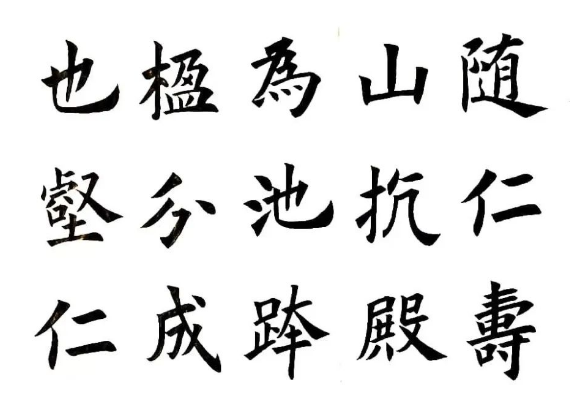 随仁壽
山抗殿
為池跨
楹分成
也壑仁